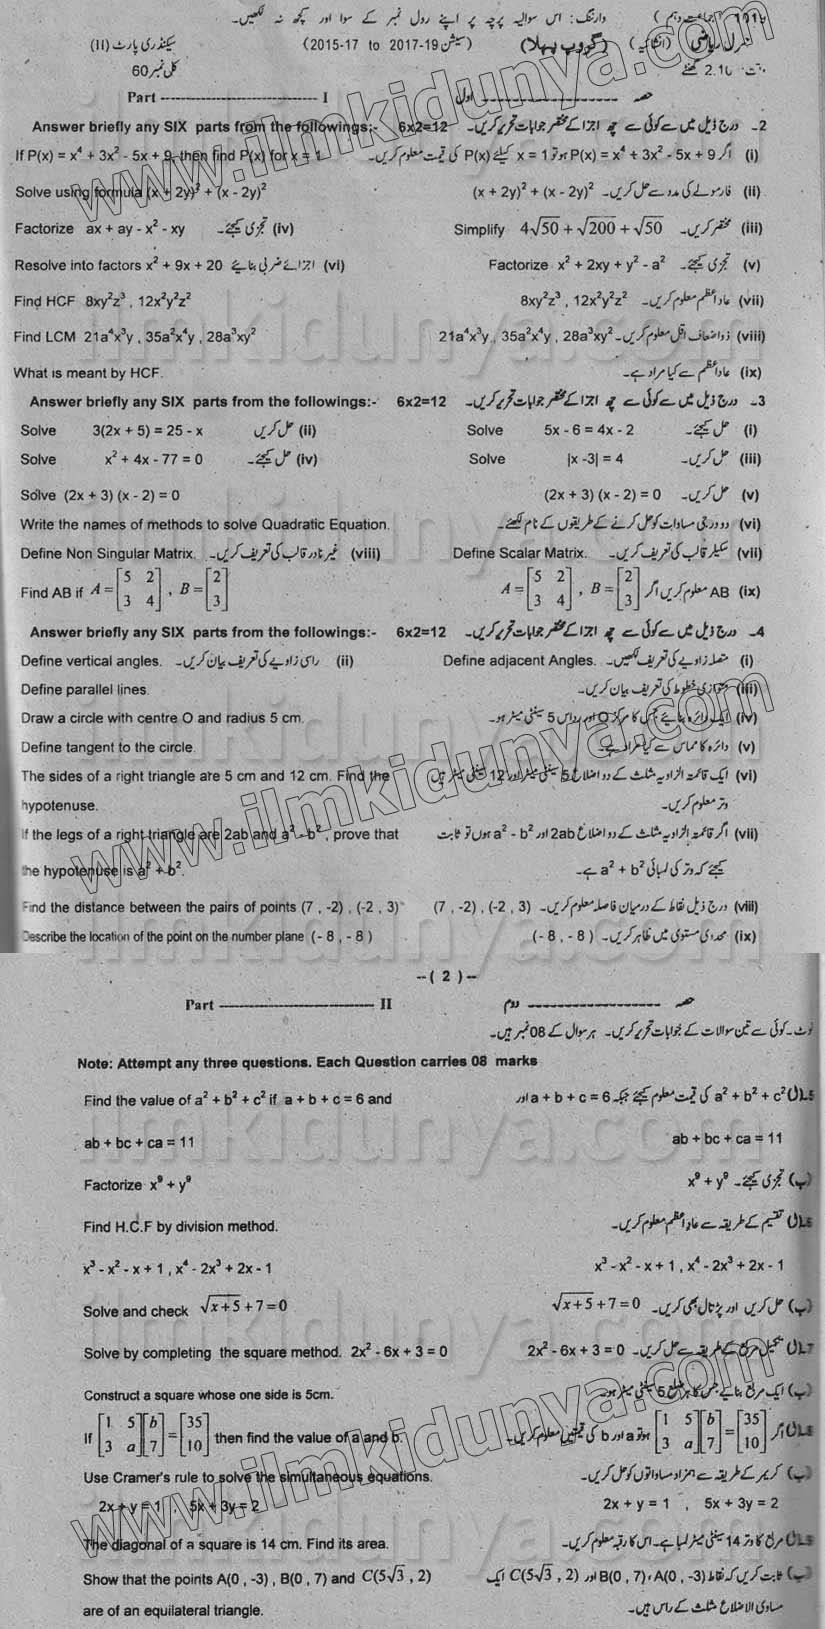 وارننگ: اس سوالیہ پرچہ پر اپنے رول نمبر کے سوا اور کچھ نہ لکھیں۔ (جماعت دہم)
جنرل ریاضی (انشائیہ) (گروپ پہلا) (سیشن 2015-17 to 2017-19) سیکنڈری پارٹ (II)
کل نمبر 60
Part ------ I حصہ ------ اول
Answer briefly any SIX parts from the followings:- 6x2=12 2۔ درج ذیل میں سے کوئی سے چھ اجزا کے مختصر جوابات تحریر کریں۔
If P(x) = x⁴ + 3x² - 5x + 9, then find P(x) for x = 1 (i) اگر P(x) = x⁴ + 3x² - 5x + 9 ہو تو x = 1 کیلئے P(x) کی قیمت معلوم کریں۔
Solve using formula (x + 2y)² + (x - 2y)² (ii) فارمولے کی مدد سے حل کریں۔ (x + 2y)² + (x - 2y)²
Factorize ax + ay - x² - xy (iv) تجزی کیجئے۔ Simplify 4√50 + √200 + √50 (iii) مختصر کریں۔
Resolve into factors x² + 9x + 20 (vi) اجزائے ضربی بنائیے Factorize x² + 2xy + y² - a² (v) تجزی کیجئے۔
Find HCF 8xy²z³ , 12x²y²z² (vii) عاد اعظم معلوم کریں۔ 8xy²z³ , 12x²y²z²
Find LCM 21a⁴x³y , 35a²x⁴y , 28a³xy² (viii) ذو اضعاف اقل معلوم کریں۔ 21a⁴x³y , 35a²x⁴y , 28a³xy²
What is meant by HCF. (ix) عاد اعظم سے کیا مراد ہے۔
Answer briefly any SIX parts from the followings:- 6x2=12 3۔ درج ذیل میں سے کوئی سے چھ اجزا کے مختصر جوابات تحریر کریں۔
Solve 3(2x + 5) = 25 - x (ii) حل کریں Solve 5x - 6 = 4x - 2 (i) حل کیجئے۔
Solve x² + 4x - 77 = 0 (iv) حل کیجئے۔ Solve |x -3| = 4 (iii) حل کریں۔
Solve (2x + 3) (x - 2) = 0 (v) حل کریں۔ (2x + 3) (x - 2) = 0
Write the names of methods to solve Quadratic Equation. (vi) دو درجی مساوات کو حل کرنے کے طریقوں کے نام لکھئے۔
Define Non Singular Matrix. (viii) غیر نادر قالب کی تعریف کریں۔ Define Scalar Matrix. (vii) سکیلر قالب کی تعریف کریں۔
Find AB if A = [5 2; 3 4] , B = [2; 3] (ix) AB معلوم کریں اگر A = [5 2; 3 4] , B = [2; 3]
Answer briefly any SIX parts from the followings:- 6x2=12 4۔ درج ذیل میں سے کوئی سے چھ اجزا کے مختصر جوابات تحریر کریں۔
Define vertical angles. (ii) راسی زاویے کی تعریف بیان کریں۔ Define adjacent Angles. (i) متصلہ زاویے کی تعریف لکھیں۔
Define parallel lines. (iii) متوازی خطوط کی تعریف بیان کریں۔
Draw a circle with centre O and radius 5 cm. (iv) ایک دائرہ بنائیے جس کا مرکز O اور رداس 5 سینٹی میٹر ہو۔
Define tangent to the circle. (v) دائرہ کا مماس سے کیا مراد ہے۔
The sides of a right triangle are 5 cm and 12 cm. Find the (vi) ایک قائمۃ الزاویہ مثلث کے دو اضلاع 5 سینٹی میٹر اور 12 سینٹی میٹر ہیں
hypotenuse. وتر معلوم کریں۔
If the legs of a right triangle are 2ab and a² - b² , prove that (vii) اگر قائمۃ الزاویہ مثلث کے دو اضلاع 2ab اور a² - b² ہوں تو ثابت
the hypotenuse is a² + b². کیجئے کہ وتر کی لمبائی a² + b² ہے۔
Find the distance between the pairs of points (7 , -2) , (-2 , 3) (viii) درج ذیل نقاط کے درمیان فاصلہ معلوم کریں۔ (7 , -2) , (-2 , 3)
Describe the location of the point on the number plane (- 8 , - 8 ) (ix) محددی مستوی میں ظاہر کریں۔ (- 8 , - 8 )
--( 2 )--
Part ------ II حصہ ------ دوم
نوٹ۔ کوئی سے تین سوالات کے جوابات تحریر کریں۔ ہر سوال کے 08 نمبر ہیں۔
Note: Attempt any three questions. Each Question carries 08 marks
Find the value of a² + b² + c² if a + b + c = 6 and 5۔(ا) a² + b² + c² کی قیمت معلوم کیجئے جبکہ a + b + c = 6 اور
ab + bc + ca = 11 ab + bc + ca = 11
Factorize x⁹ + y⁹ (ب) تجزی کیجئے۔ x⁹ + y⁹
Find H.C.F by division method. 6۔(ا) تقسیم کے طریقہ سے عاد اعظم معلوم کریں۔
x³ - x² - x + 1 , x⁴ - 2x³ + 2x - 1 x³ - x² - x + 1 , x⁴ - 2x³ + 2x - 1
Solve and check √x+5 + 7 = 0 (ب) حل کریں اور پڑتال بھی کریں۔ √x+5 + 7 = 0
Solve by completing the square method. 2x² - 6x + 3 = 0 7۔(ا) تکمیل مربع کے طریقہ سے حل کریں۔ 2x² - 6x + 3 = 0
Construct a square whose one side is 5cm. (ب) ایک مربع بنائیے جس کا ہر ضلع 5 سینٹی میٹر ہو۔
If [1 5; 3 a][b; 7] = [35; 10] then find the value of a and b. 8۔(ا) اگر [1 5; 3 a][b; 7] = [35; 10] ہو تو a اور b کی قیمتیں معلوم کریں۔
Use Cramer's rule to solve the simultaneous equations. (ب) کریمر کے طریقہ سے ہمزاد مساواتوں کو حل کریں۔
2x + y = 1 , 5x + 3y = 2 2x + y = 1 , 5x + 3y = 2
The diagonal of a square is 14 cm. Find its area. 9۔(ا) مربع کا وتر 14 سینٹی میٹر لمبا ہے۔ اس کا رقبہ معلوم کریں۔
Show that the points A(0 , -3) , B(0 , 7) and C(5√3 , 2) (ب) ثابت کریں کہ نقاط A(0 , -3) ، B(0 , 7) اور C(5√3 , 2) ایک
are of an equilateral triangle. مساوی الاضلاع مثلث کے راس ہیں۔
www.ilmkidunya.com